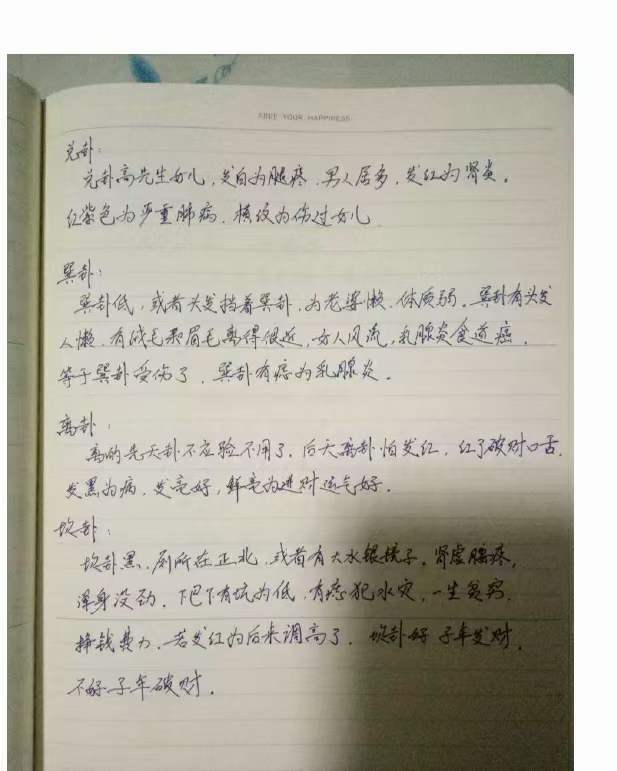 FREE YOUR HAPPINESS
兑卦：
兑卦高先生女儿，发白为腿疼，男人居多，发红为肾炎。
红紫色为严重肺病，横纹为伤过女儿
巽卦：
巽卦低，或者头发挡着巽卦，为老婆懒，体质弱。巽卦有头发
人懒，有绒毛和眉毛离得很近，女人风流，乳腺炎食道癌，
等于巽卦受伤了，巽卦有痣为乳腺炎。
离卦：
离的先天卦不应验不用了，后天离卦怕发红，红了破财口舌，
发黑为病，发亮好，鲜亮为进财运气好。
坎卦：
坎卦黑，厕所在正北，或者有大水银镜子，肾虚腰疼，
浑身没劲，下巴下有坑为低，有痣犯水灾，一生贫穷，
挣钱费力，若发红为后来调高了，坎卦好子年发财，
不好子年破财。